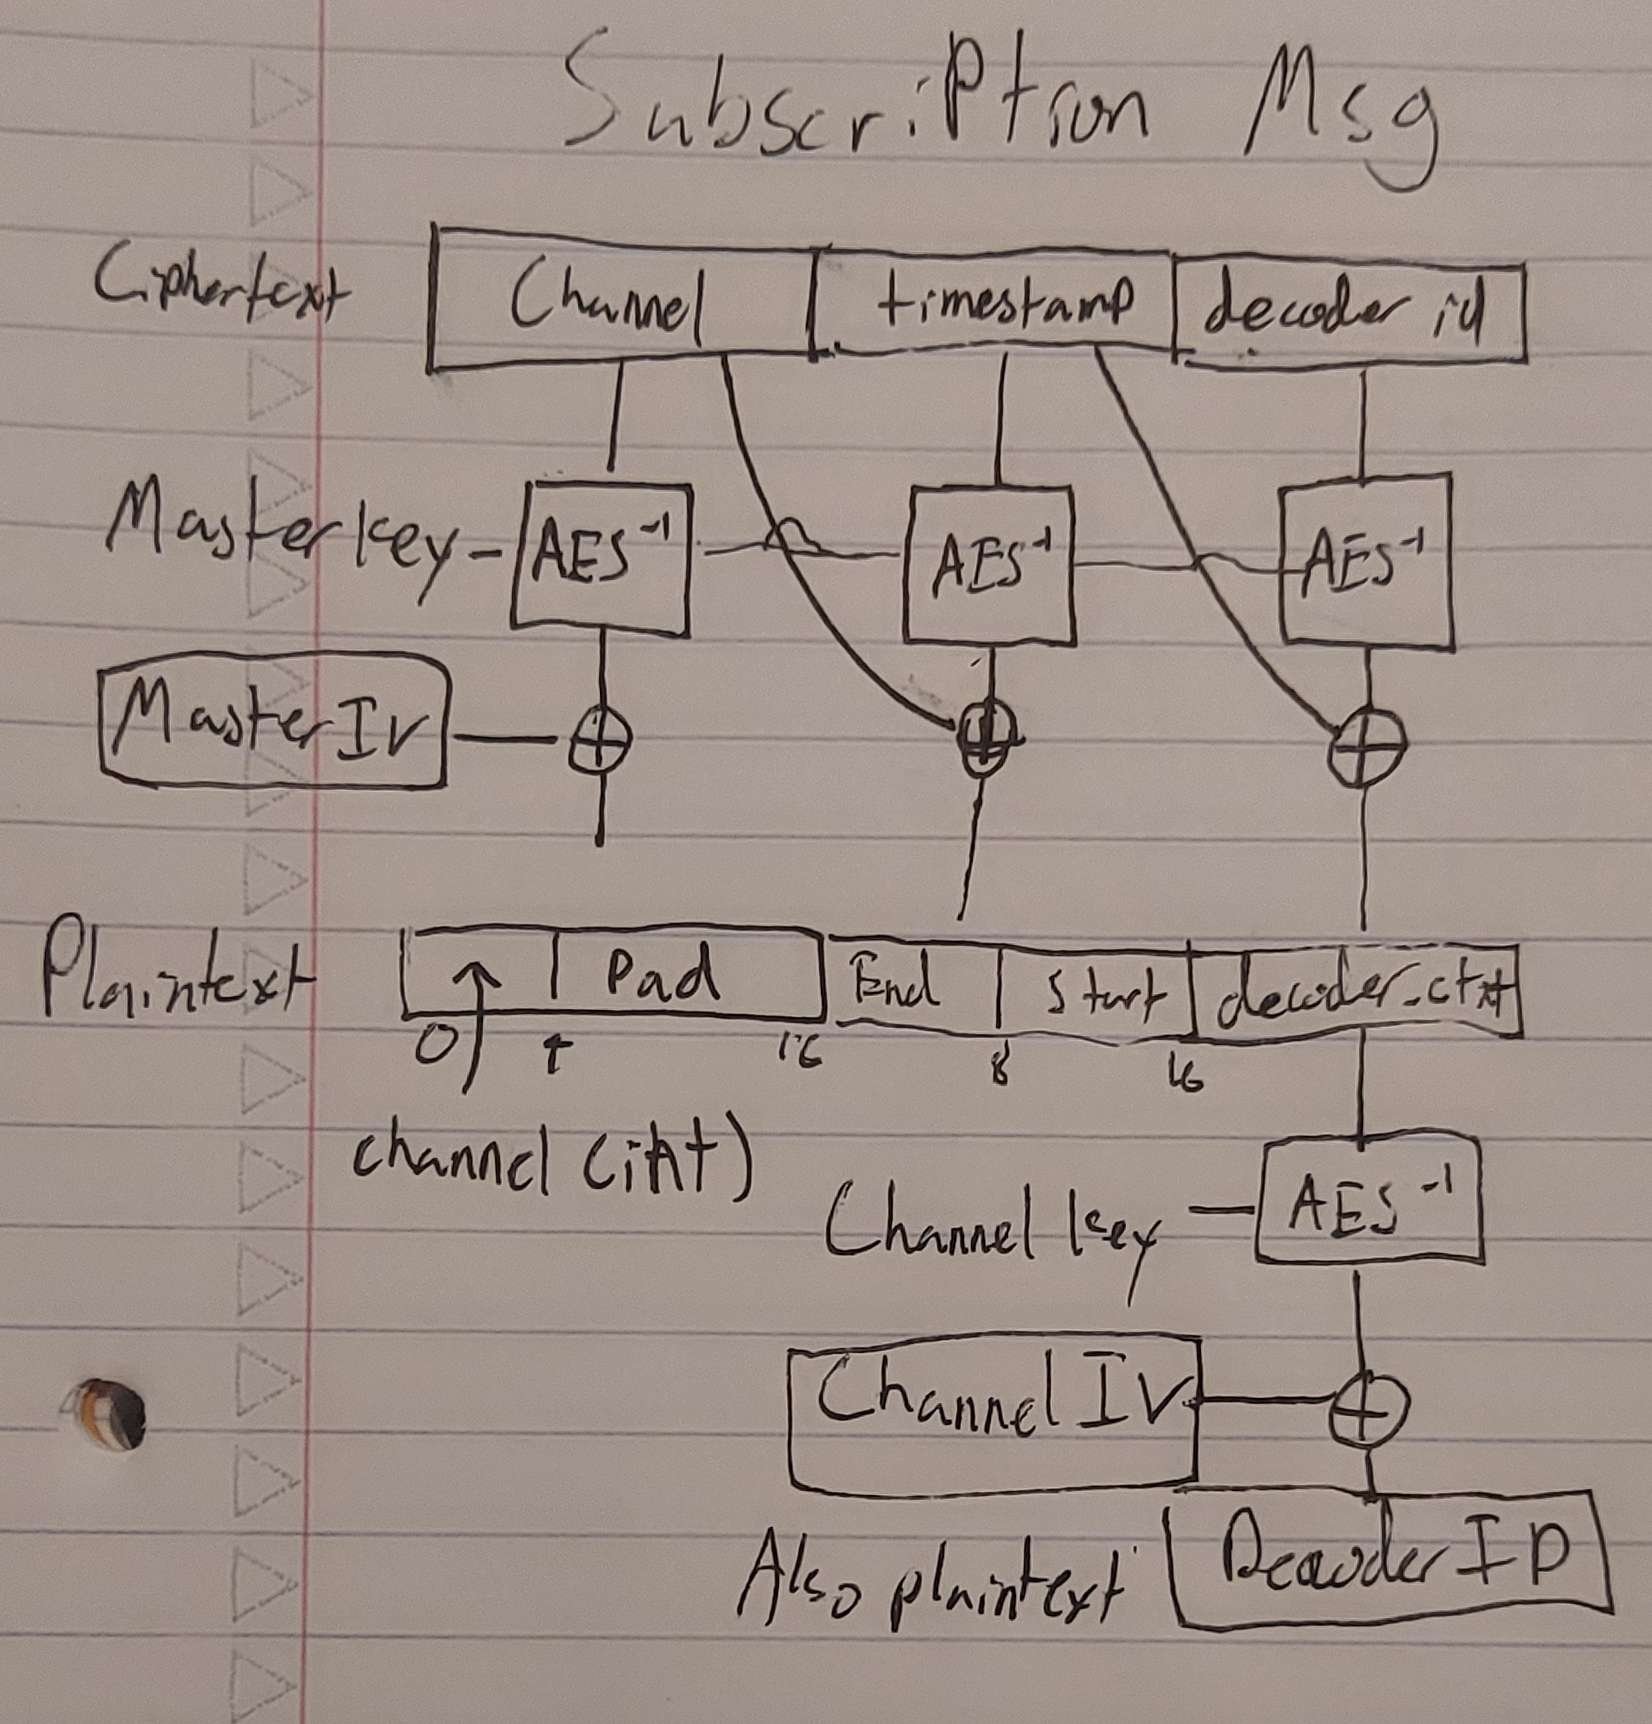 Subscription Msg
Ciphertext Channel timestamp decoder id
Master key AES⁻¹ AES⁻¹ AES⁻¹
Master IV
Plaintext Pad End Start decoder_ctxt
0 4 16 8 16
channel (int)
Channel key AES⁻¹
Channel IV
Also plaintext Decoder ID